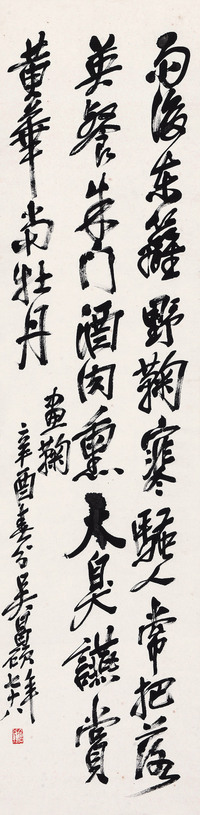 雨後東籬野鞠寒騷人常把落
英餐朱門酒肉熏天臭讌賞
黃華當牡丹
畫鞠
辛酉春分吳昌碩年七十八